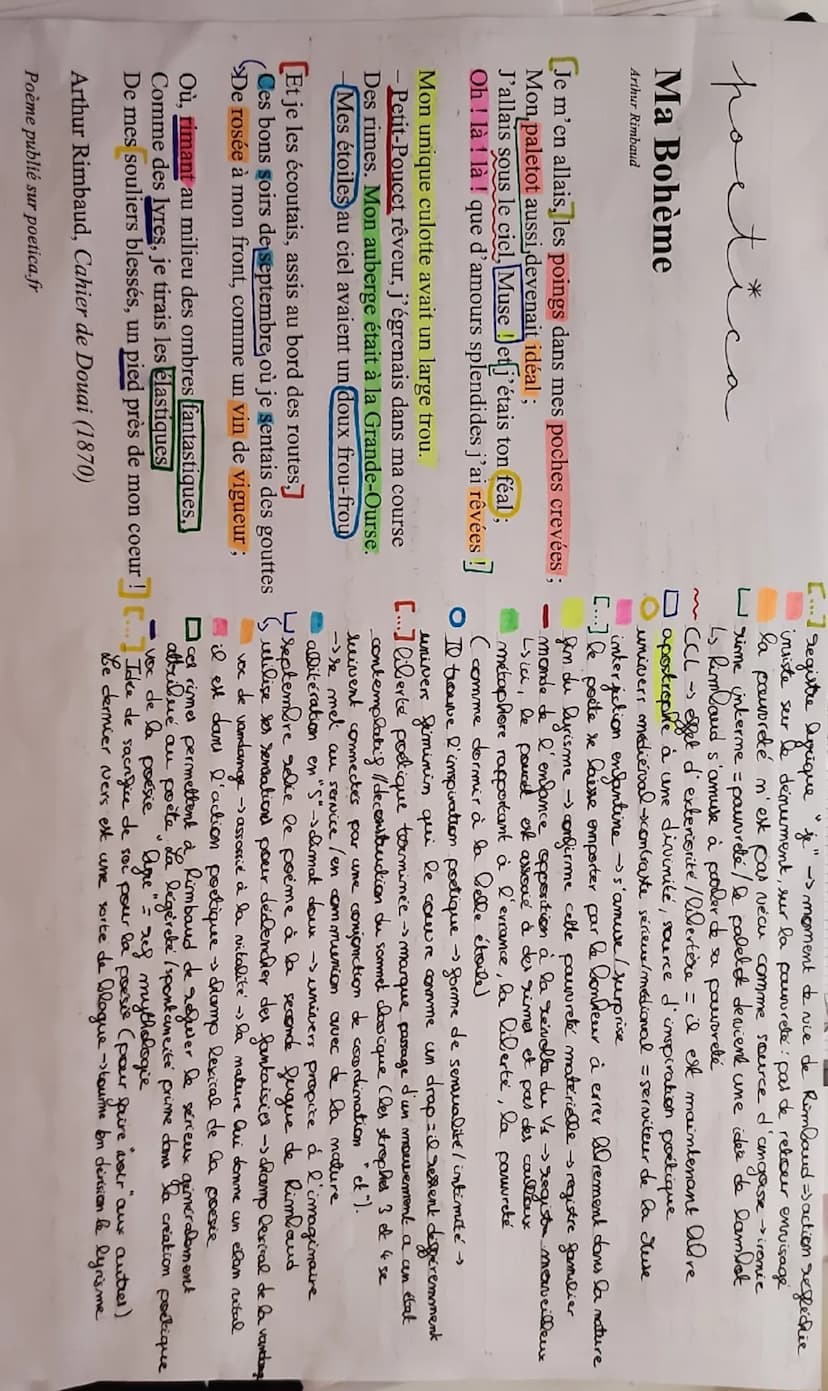 poetica
Ma Bohème
Arthur Rimbaud
Je m'en allais, les poings dans mes poches crevées ;
Mon paletot aussi devenait idéal ;
J'allais sous le ciel, Muse ! et j'étais ton féal ;
Oh ! là ! là ! que d'amours splendides j'ai rêvées !
Mon unique culotte avait un large trou.
– Petit-Poucet rêveur, j'égrenais dans ma course
Des rimes. Mon auberge était à la Grande-Ourse.
– Mes étoiles au ciel avaient un doux frou-frou
Et je les écoutais, assis au bord des routes,
Ces bons soirs de septembre où je sentais des gouttes
De rosée à mon front, comme un vin de vigueur ;
Où, rimant au milieu des ombres fantastiques,
Comme des lyres, je tirais les élastiques
De mes souliers blessés, un pied près de mon coeur !
Arthur Rimbaud, Cahier de Douai (1870)
Poème publié sur poetica.fr
[...] registre lyrique "je" → moment de vie de Rimbaud → action réfléchie
insiste sur le dénuement, sur la pauvreté : pas de retour envisagé
la pauvreté n'est pas vécu comme source d'angoisse → ironie
rime interne = pauvreté / le paletot devient une idée de
↳ Rimbaud s'amuse à parler de sa pauvreté
CCL → effet d'extériorité / libertère = il est maintenant libre
apostrophe à une divinité, source d'inspiration poétique
univers médiéval → contraste sérieux/médiéval = serviteur de la Muse
interjection enfantine → s'amuse / surprise
[...] le poète se laisse emporter par le bonheur à errer librement dans la nature
fin du lyrisme → confirme cette pauvreté matérielle → registre familier
monde de l'enfance opposition à la révolte du V1 → registre merveilleux
↳ ici, le poucet est associé à des rimes et pas des cailloux
métaphore rapportant à l'errance, la liberté, la pauvreté
(comme dormir à la belle étoile)
Il trouve l'inspiration poétique → forme de sensualité / intimité →
univers féminin qui le couvre comme un drap = il ressent différemment
[...] liberté poétique terminée → marque passage d'un mouvement à un état
contemplatif // déconstruction du sonnet classique (les strophes 3 et 4 se
suivent connectés par une conjonction de coordination "et").
→ se met au service / en communion avec de la nature
allitération en "S" → climat doux → univers propice à l'imaginaire
septembre relie le poème à la seconde fugue de Rimbaud
utilise ses sensations pour déclencher des fantaisies → champ lexical de la
voc de vendange → associé à la vitalité → la nature lui donne un élan vital
il est dans l'action poétique → champ lexical de la poésie
ces rimes permettent à Rimbaud de le sérieux généralement
attribué au poète, la légèreté / spontanéité prime dans sa création poétique
voc de la poésie "lyre" = ref mythologie
[...] Idée de sacrifice de soi pour la poésie (pour faire "voir" aux autres)
Le dernier vers est une sorte de blague → tourne en dérision le lyrisme